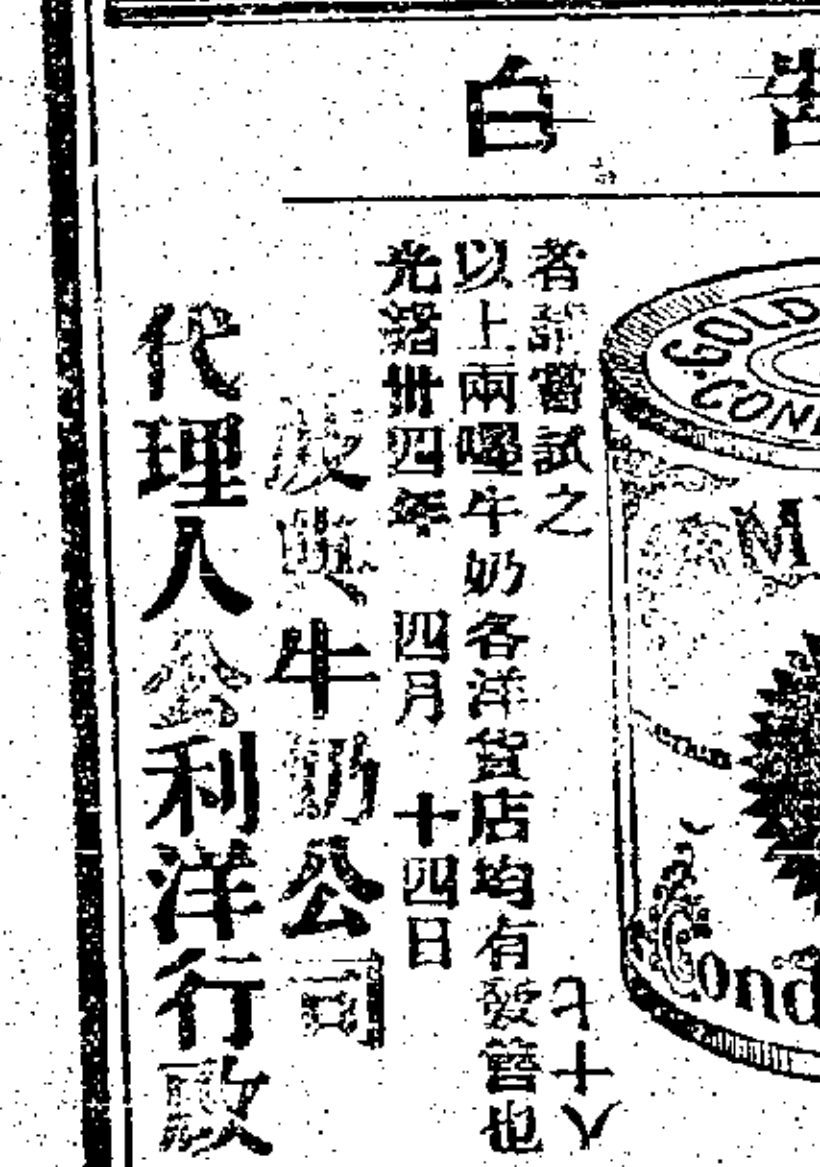 告白
GOLD
CON
M
Cond
者請嘗試之
七十八
以上兩嘜牛奶各洋貨店均有發售也
光緒卅四年 四月 十四日
牛奶公司
代理人公利洋行啟